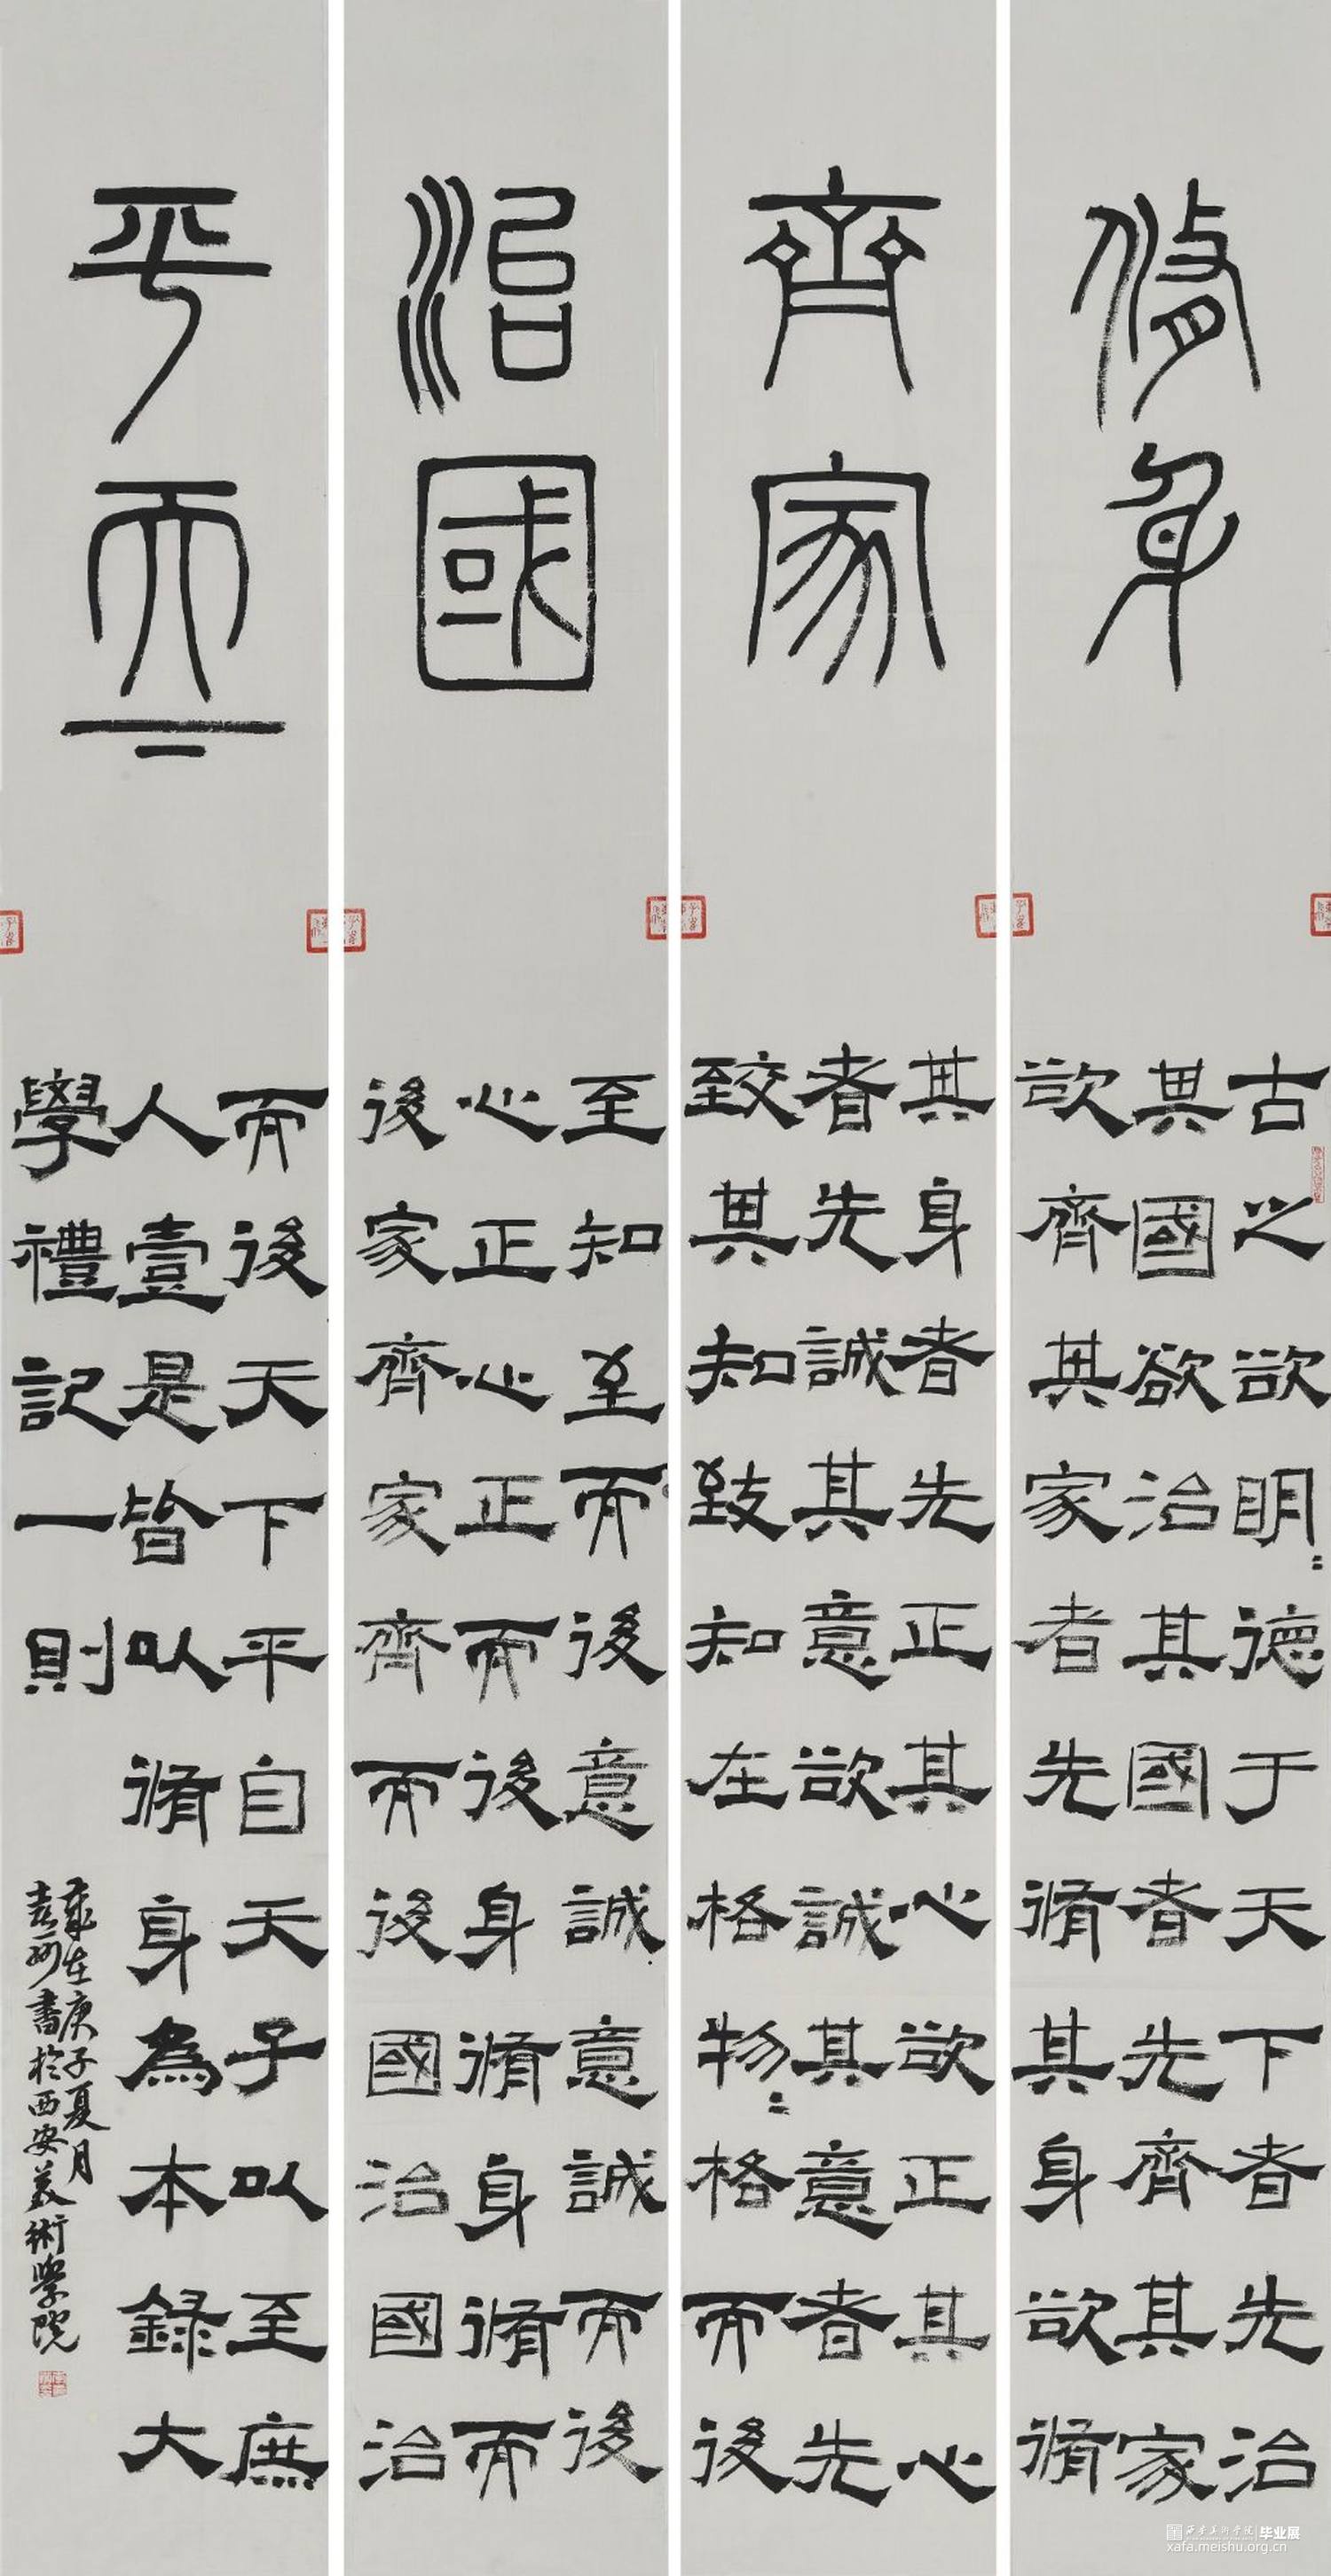 脩身
古之欲明〻德于天下者先治
其國欲治其國者先齊其家
欲齊其家者先脩其身欲脩
齊家
其身者先正其心欲正其心
者先誠其意欲誠其意者先
致其知致知在格物〻格而後
治國
至知至而後意誠意誠而後
心正心正而後身脩身脩而
後家齊家齊而後國治國治
平天下
而後天下平自天子以至庶
人壹是皆以脩身為本錄大
學禮記一則
歲在庚子夏月
書於西安美術學院
西安美术学院 毕业展
xafa.meishu.org.cn